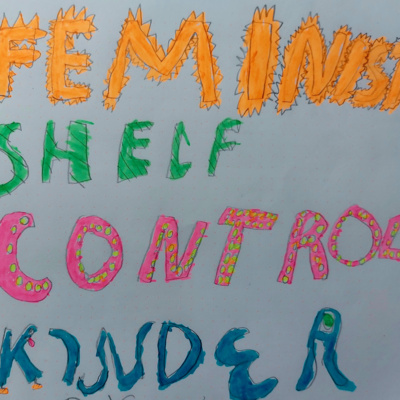 FEMINIST
SHELF
CONTROL
KINDER A